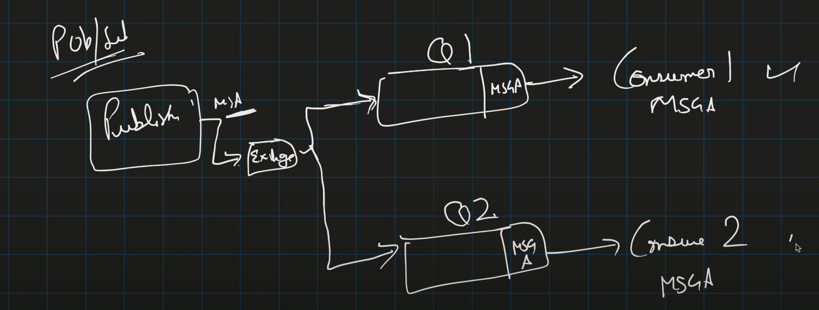 Pub/Sub
Publish
MSA
Exchge
Q1
MSGA
Consumer 1
MSGA
Q2
MSG
A
Consume 2
MSGA